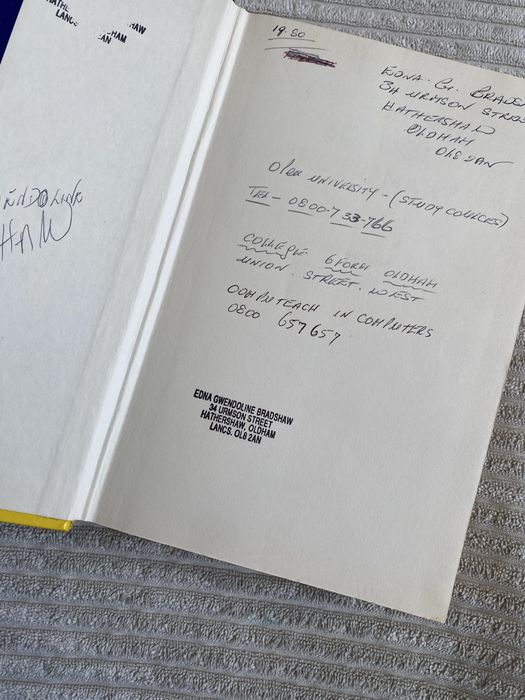 LANCS
HAW
HAM
AN
19.50
EDNA. G. BRADS
34 URMSON STREE
HATHERSHAW
OLDHAM
OL8 2AN
OPEN UNIVERSITY - (STUDY COUNCES)
TEL - 0800-733-766
COLLEGE 6FORM OLDHAM
UNION. STREET. WEST
COMPUTEACH IN COMPUTERS
0800 657657
EDNA GWENDOLINE BRADSHAW
34 URMSON STREET
HATHERSHAW, OLDHAM
LANCS. OL8 2AN